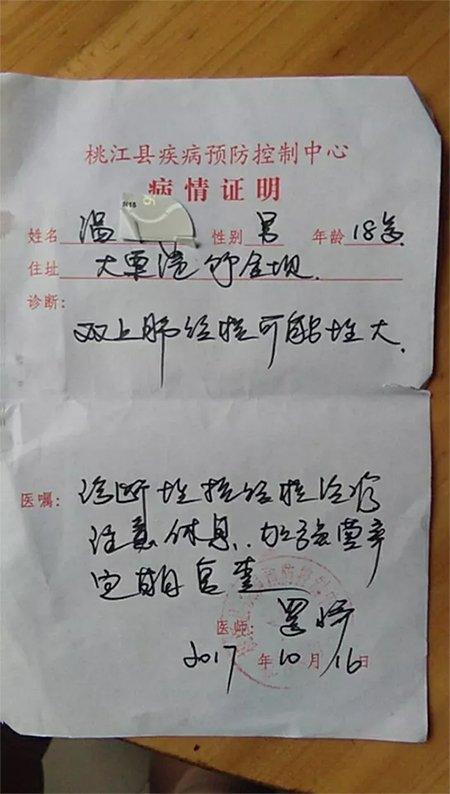 桃江县疾病预防控制中心
病情证明
姓名 温 性别 男 年龄 18岁
住址 大栗港 金坝
诊断:
双上肺结核可能性大.
医嘱: 诊断性抗结核治疗
注意休息, 加强营养
定期复查
医师: 罗
2017年10月16日